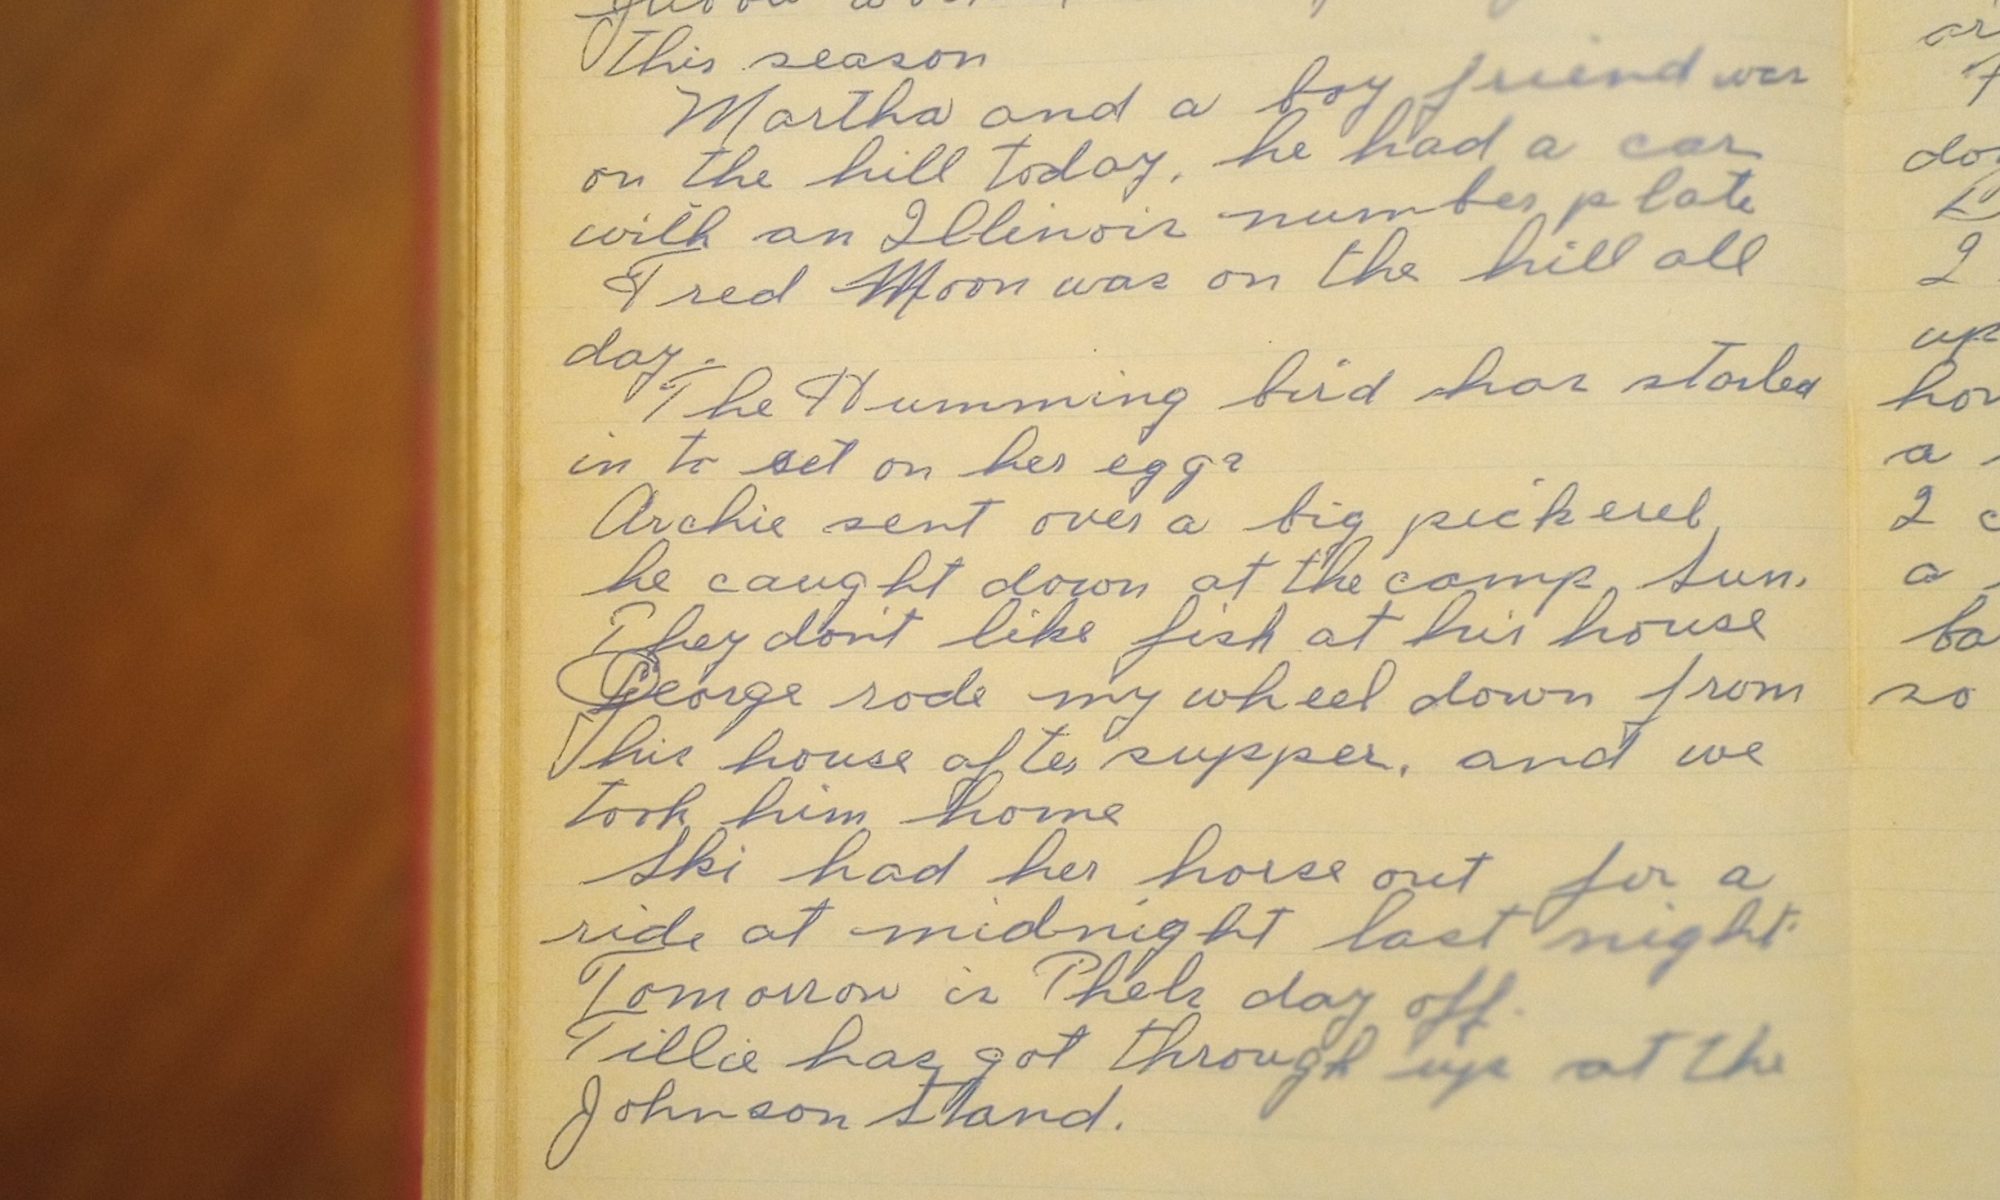 this season
Martha and a boy friend was
on the hill today, he had a car
with an Illinois number plate
Fred Moon was on the hill all
day.
The Humming bird has started
in to set on her eggs
Archie sent over a big pickerel,
he caught down at the camp, Sun.
They don't like fish at his house
George rode my wheel down from
his house after supper, and we
took him home
Ski had her horse out for a
ride at midnight last night.
Tomorrow is Phels day off.
Tillie has got through up at the
Johnson stand.
do
2
up
a
2
a
ba
so